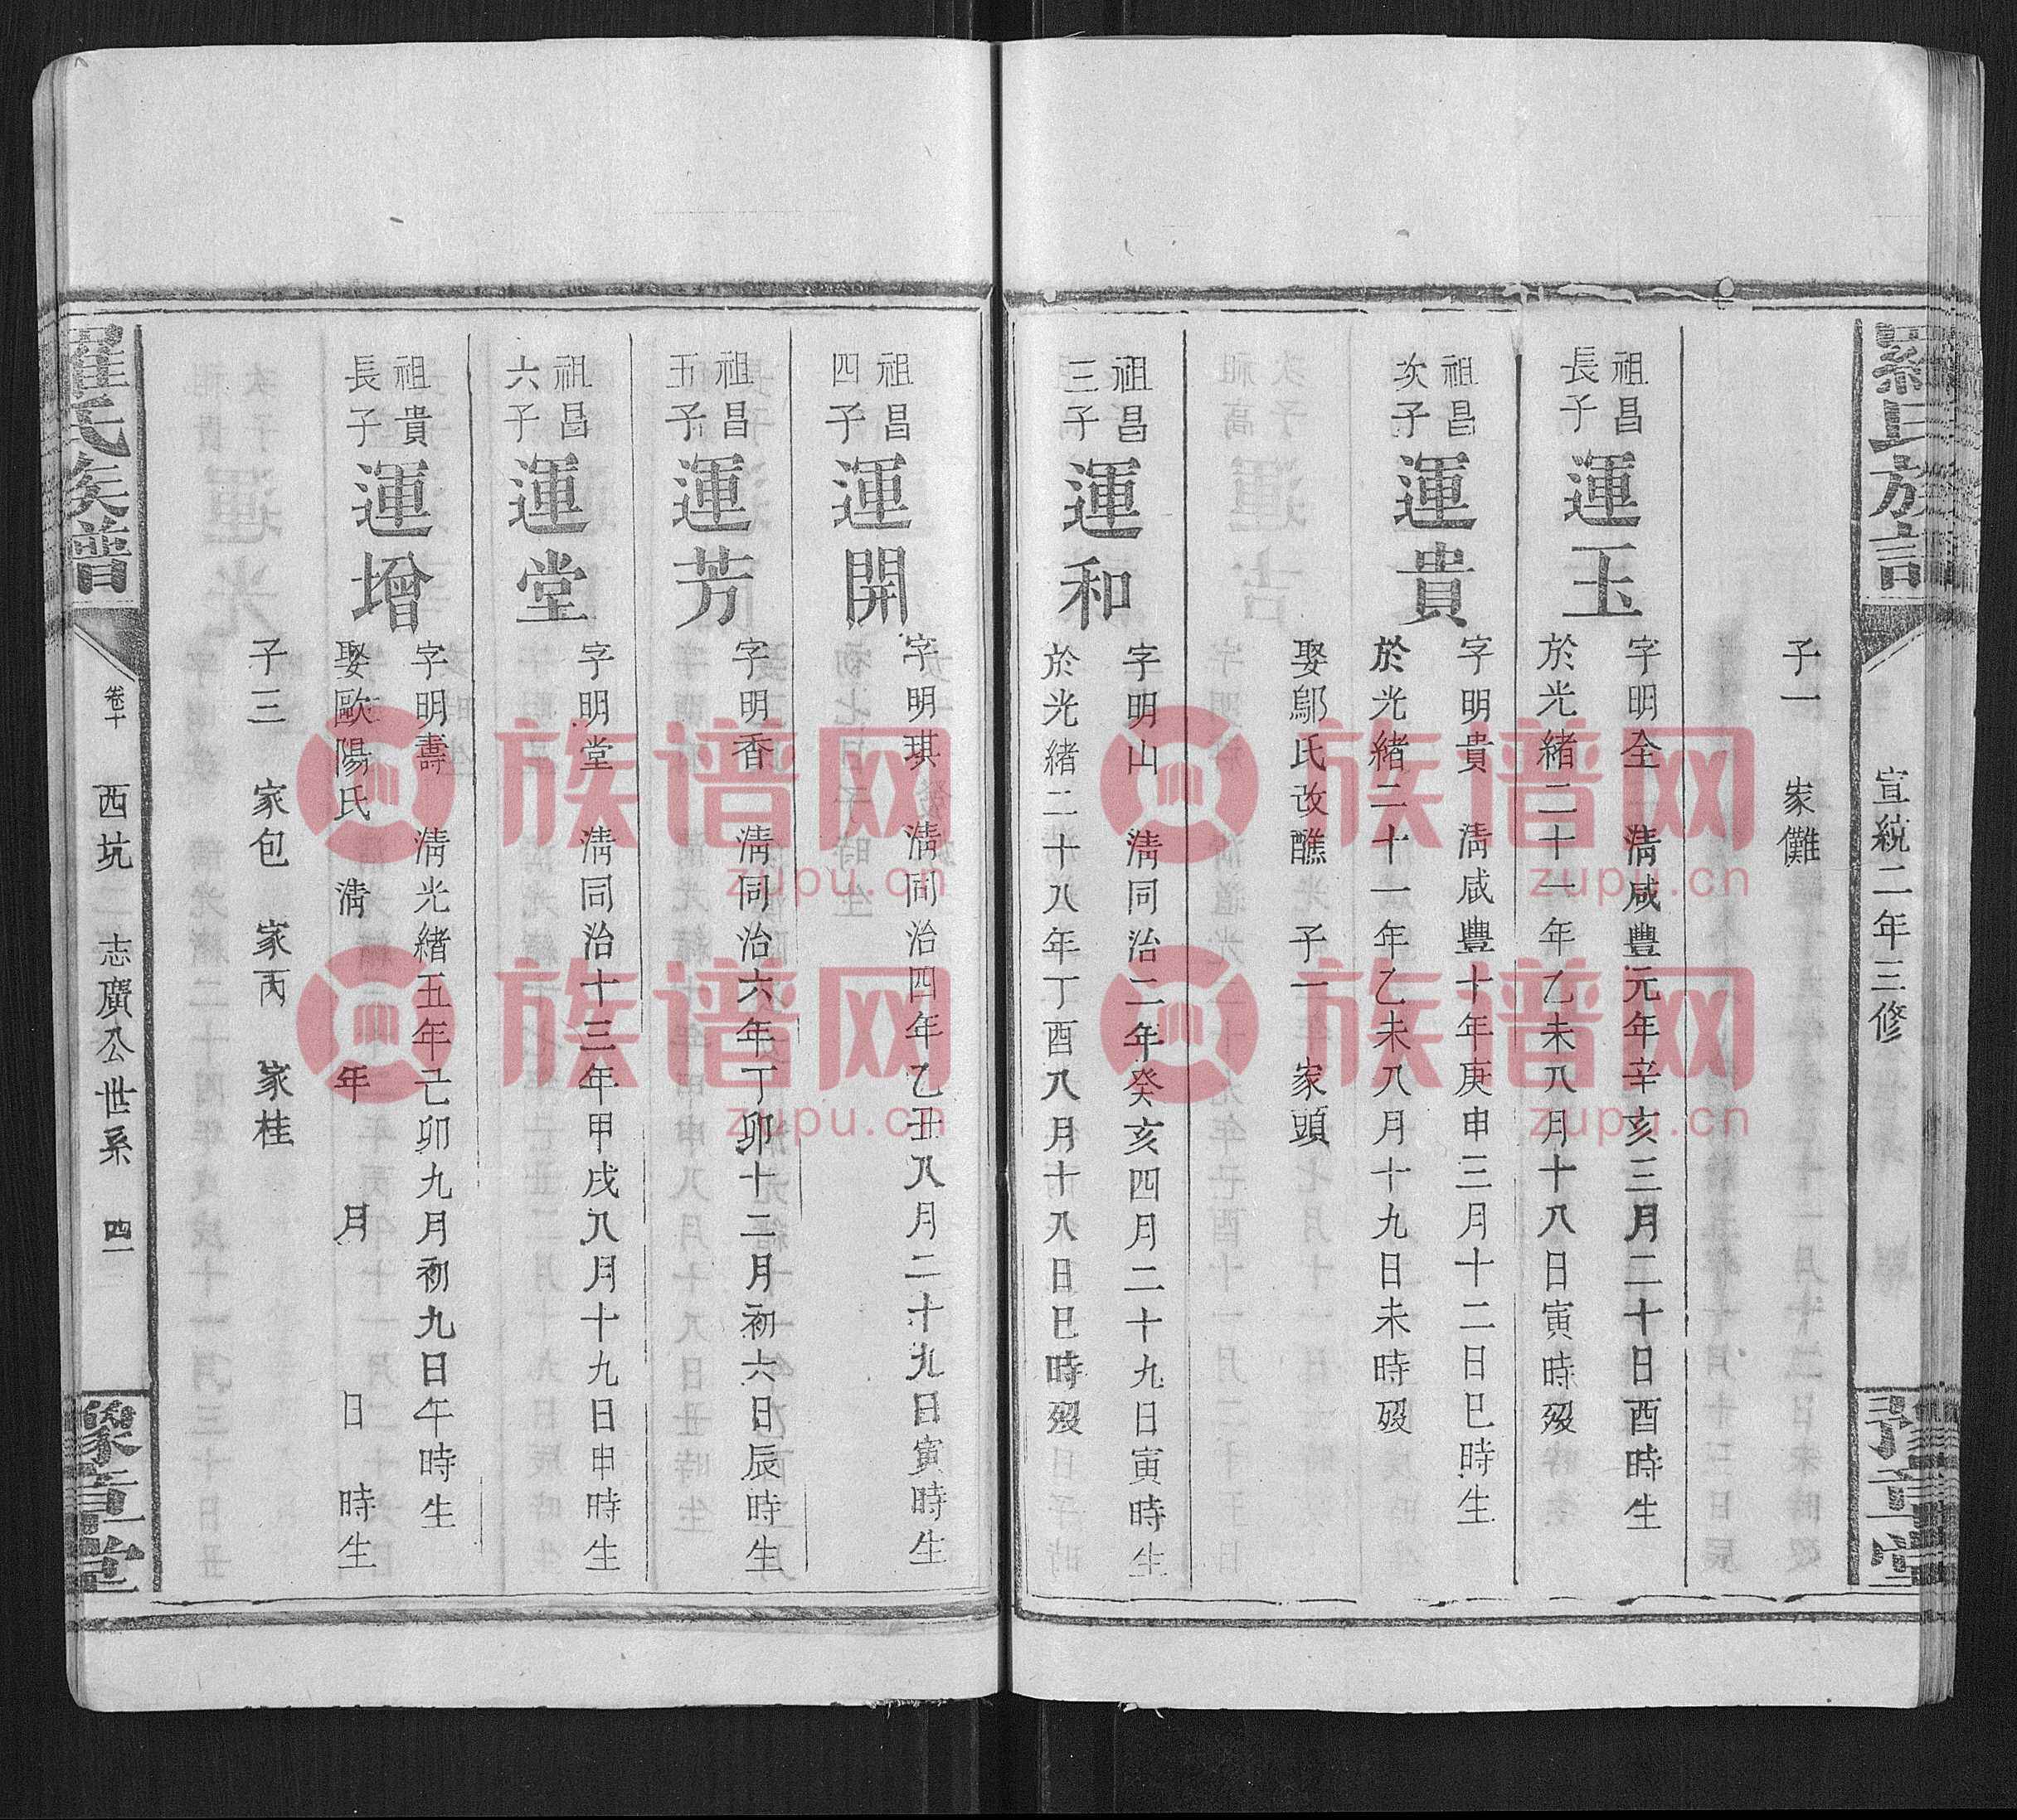 羅氏族譜
宣統二年三修
豫章堂
子一　家儺
祖昌
長子
運玉
字明全　淸咸豐元年辛亥三月二十日酉時生
於光緒二十一年乙未八月十八日寅時歿
祖昌
次子
運貴
字明貴　淸咸豐十年庚申三月十二日巳時生
於光緒二十一年乙未八月十九日未時歿
娶鄔氏改醮　子一　家頭
祖昌
三子
運和
字明山　淸同治二年癸亥四月二十九日寅時生
於光緒二十八年丁酉八月十八日巳時歿
祖昌
四子
運開
字明琪　淸同治四年乙丑八月二十九日寅時生
祖昌
五子
運芳
字明香　淸同治六年丁卯十二月初六日辰時生
祖昌
六子
運堂
字明堂　淸同治十三年甲戌八月十九日申時生
祖貴
長子
運增
字明壽　淸光緒五年己卯九月初九日午時生
娶歐陽氏　淸　年　月　日　時生
子三　家包　家丙　家桂
羅氏族譜
卷十　西坑　志廣公世系　四一
豫章堂
族谱网
zupu.cn
族谱网
zupu.cn
族谱网
zupu.cn
族谱网
zupu.cn